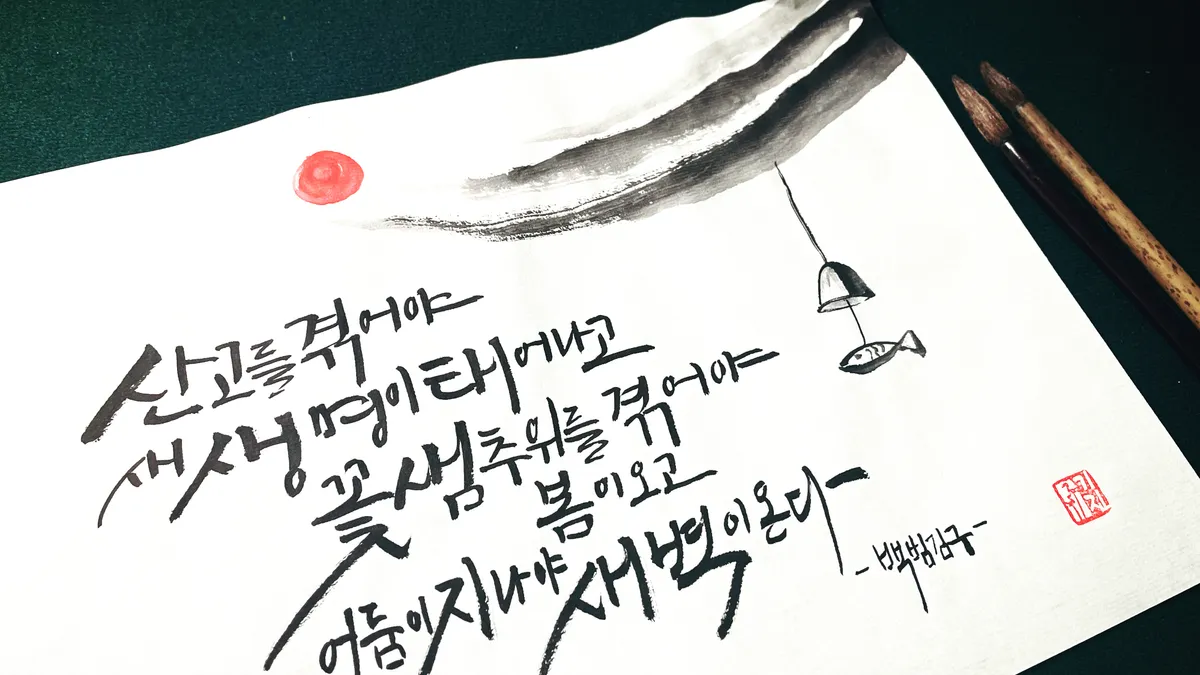 산고를 겪어야
새 생명이 태어나고
꽃샘추위를 겪어야
봄이 오고
어둠이 지나야 새벽이 온다
- 백범김구 -